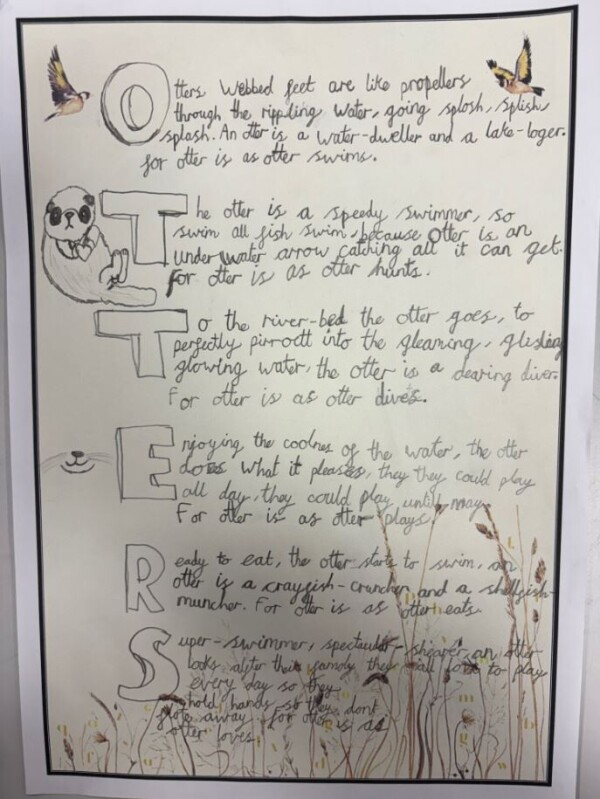 Otters Webbed feet are like propellers
through the rippling water, going splosh, splish,
splash. An otter is a water-dweller and a lake-loger.
for otter is as otter swims.
The otter is a speedy swimmer, so
swim all fish swim, because Otter is an
underwater arrow catching all it can get.
For otter is as otter hunts.
To the river-bed the otter goes, to
perfectly pirroett into the gleaming, glisting
glowing water, the otter is a dearing diver.
For otter is as otter dives.
Enjoying the coolnes of the water, the otter
does what it pleases, they they could play
all day, they could play untill may
For otter is as otter plays.
Ready to eat, the otter starts to swim, an
otter is a crayfish-cruncher and a shellfish-
muncher. For otter is as otter eats.
Super-swimmer, an otter
looks their they all love to play
every day so they
hold hands so they dont
flote away for otter is as
otter loves